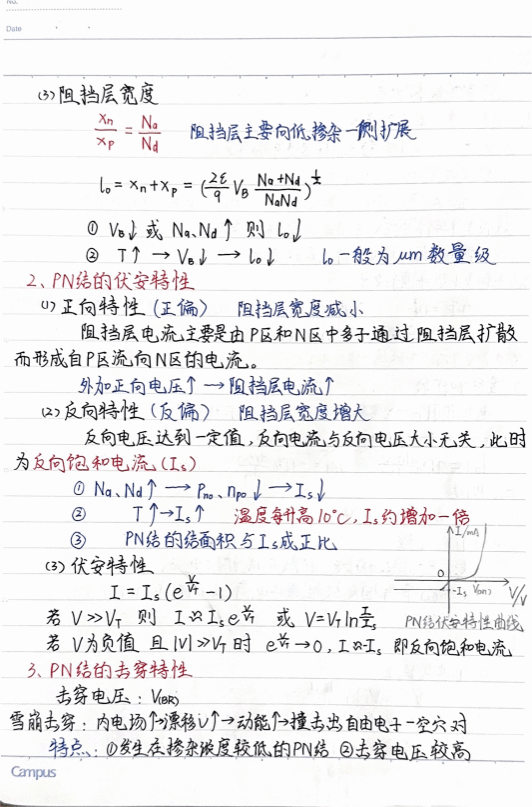 No.
Date
(3) 阻挡层宽度
xn/xp = Na/Nd 阻挡层主要向低掺杂一侧扩展
l₀ = xn + xp = (2ε/q VB (Na+Nd)/(NaNd))^½
① VB↓ 或 Na、Nd↑ 则 l₀↓
② T↑ → VB↓ → l₀↓ l₀一般为μm数量级
2、PN结的伏安特性
(1) 正向特性 (正偏) 阻挡层宽度减小
阻挡层电流主要是由P区和N区中多子通过阻挡层扩散
而形成自P区流向N区的电流。
外加正向电压↑ → 阻挡层电流↑
(2) 反向特性 (反偏) 阻挡层宽度增大
反向电压达到一定值,反向电流与反向电压大小无关,此时
为反向饱和电流 (Is)
① Na、Nd↑ → Pno、npo↓ → Is↓
② T↑ → Is↑ 温度每升高10℃, Is约增加一倍
③ PN结的结面积与Is成正比
(3) 伏安特性
I = Is (e^(V/VT) - 1)
若 V ≫ VT 则 I ≈ Is e^(V/VT) 或 V = VT ln I/Is
若 V为负值 且 |V| ≫ VT 时 e^(V/VT) → 0, I ≈ -Is 即反向饱和电流
I/mA
0
-Is V(on)
V/V
PN结伏安特性曲线
3、PN结的击穿特性
击穿电压: V(BR)
雪崩击穿: 内电场↑→漂移v↑→动能↑→撞击出自由电子-空穴对
特点: ①发生在掺杂浓度较低的PN结 ②击穿电压较高
Campus